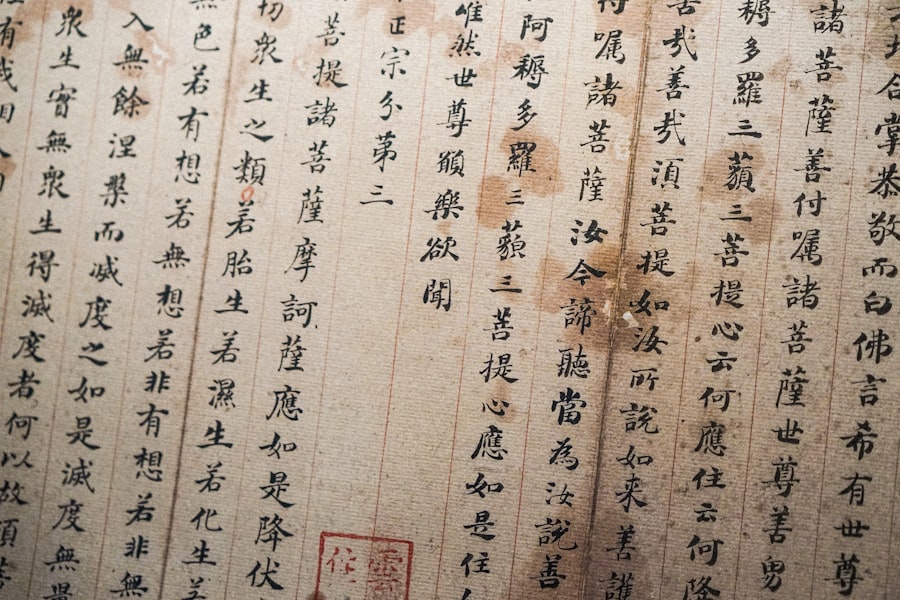 合掌恭敬而白佛言希有世尊
諸菩薩善付嘱諸菩薩世尊善男
耨多羅三藐三菩提心云何應住云何降
善哉善哉須菩提如汝所說如来善護
付嘱諸菩薩汝今諦聽當為汝說善
阿耨多羅三藐三菩提心應如是住
唯然世尊願樂欲聞
正宗分第三
菩提諸菩薩摩訶薩應如是降伏
切衆生之類若胎生若濕生若化生若
無色若有想若無想若非有想若非無
入無餘涅槃而滅度之如是滅度無量
衆生實無衆生得滅度者何以故須菩
有我相人